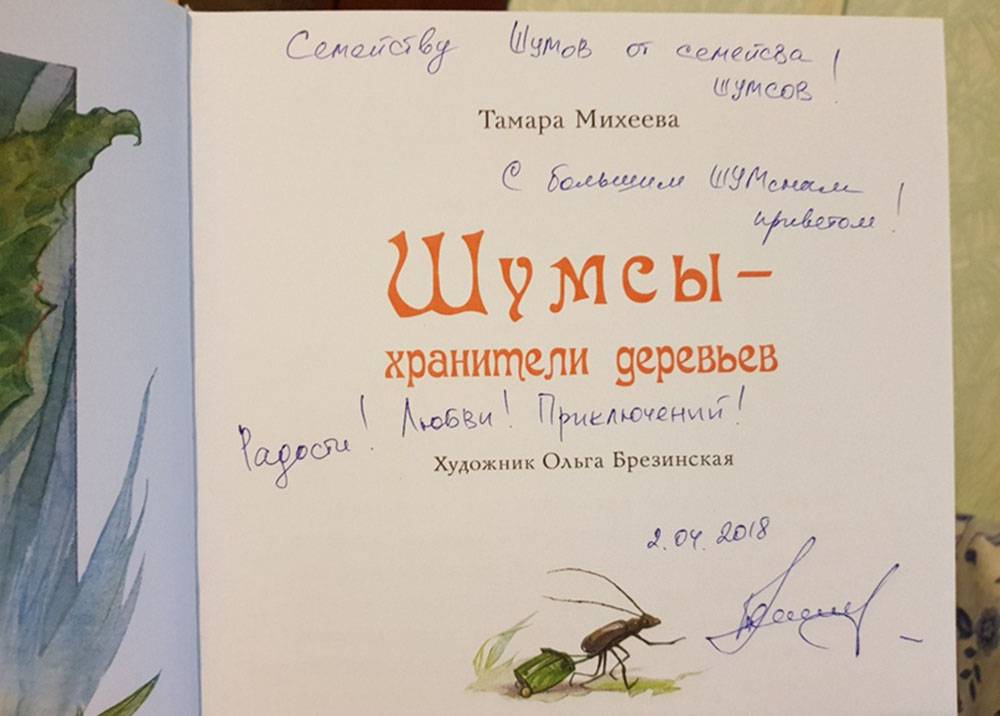 Семейству Шумов от семейсва
шумсов!
Тамара Михеева
С большим ШУМсным
приветом!
Шумсы –
хранители деревьев
Радости! Любви! Приключений!
Художник Ольга Брезинская
2.04.2018